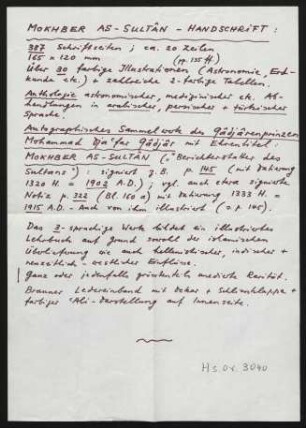 MOKHBER AS-SULTĀN - HANDSCHRIFT:
387 Schriftseiten; ca. 20 Zeilen
165 × 120 mm (pp. 155 ff.)
Über 30 farbige Illustrationen (Astronomie, Erd-
kunde etc.) + zahlreiche 2-farbige Tabellen.
Anthologie astronomischer, medizinischer etc. Ab-
handlungen in arabischer, persischer + türkischer
Sprache.
Autographisches Sammelwerk des qādjārenprinzen
Mohammad Dja'far Qādjār mit Ehrentitel:
MOKHBER AS-SULTĀN ("Berichterstatter des
Sultans"): signiert z.B. p. 145 (mit Datierung
1320 H. = 1902 A.D.); vgl. auch etwa signierte
Notiz p. 322 (Bl. 160 a) mit Datierung 1333 H. =
1915 A.D. - Auch von ihm illustriert (cf. p. 145).
Das 3-sprachige Werk bildet ein illustriertes
Lehrbuch auf Grund sowohl der islamischen
Überlieferung wie auch hellenistischer, indischer +
neuzeitlich-westlicher Einflüsse.
Ganz oder jedenfalls grösstenteils unedierte Rarität.
Brauner Ledereinband mit Dekor + Schliessklappe +
farbiger 'Ali-Darstellung auf Innenseite.
Hs. or. 3040